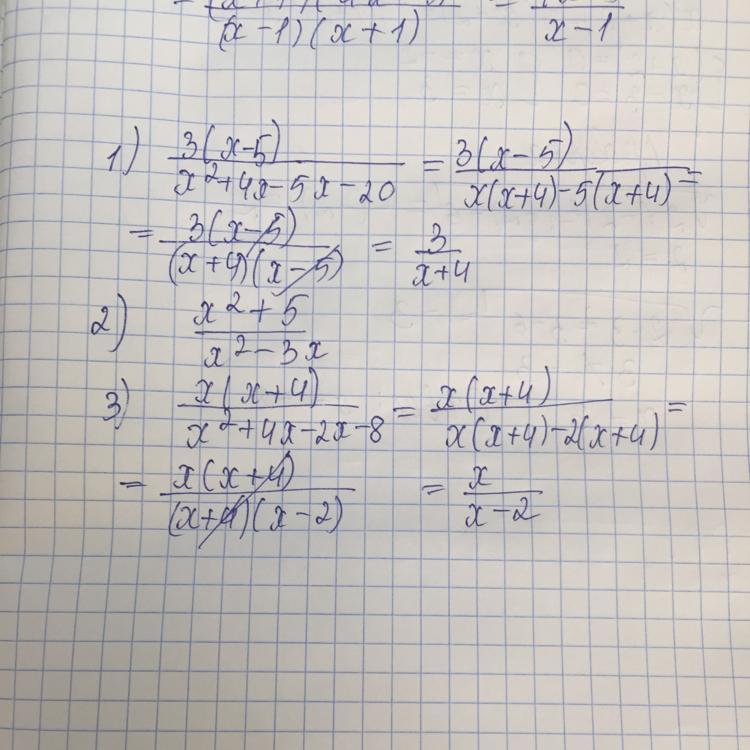 (x-1)(x+1) x-1
1) 3(x-5) / x²+4x-5x-20 = 3(x-5) / x(x+4)-5(x+4) =
= 3(x-5) / (x+4)(x-5) = 3 / x+4
2) x²+5 / x²-3x
3) x(x+4) / x²+4x-2x-8 = x(x+4) / x(x+4)-2(x+4) =
= x(x+4) / (x+4)(x-2) = x / x-2